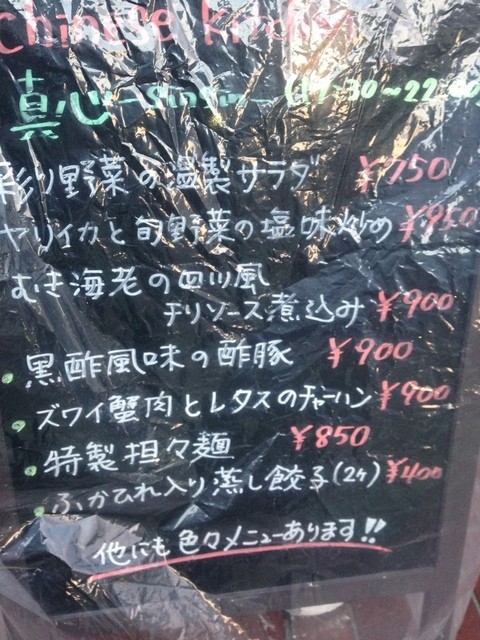 Chinese kitchen
真心 -SinSin- (17:30～22:00)
彩り野菜の温製サラダ ¥750
ヤリイカと旬野菜の塩味炒め ¥950
むき海老の四川風
チリソース煮込み ¥900
・黒酢風味の酢豚 ¥900
・ズワイ蟹肉とレタスのチャーハン ¥900
・特製担々麺 ¥850
・ふかひれ入り蒸し餃子(2ヶ) ¥400
他にも色々メニューあります!!